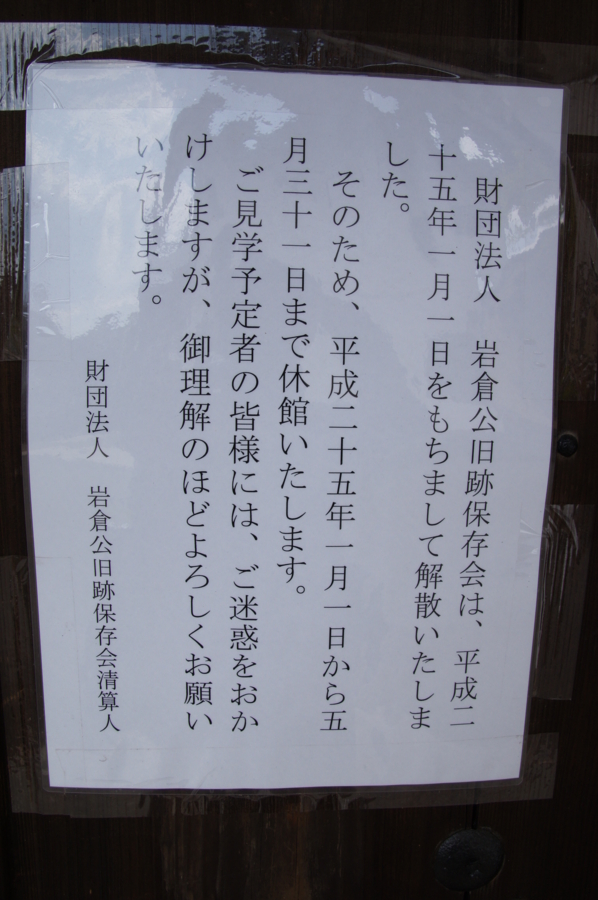 財団法人　岩倉公旧跡保存会は、平成二
十五年一月一日をもちまして解散いたしま
した。
そのため、平成二十五年一月一日から五
月三十一日まで休館いたします。
ご見学予定者の皆様には、ご迷惑をおか
けしますが、御理解のほどよろしくお願い
いたします。
財団法人　岩倉公旧跡保存会清算人